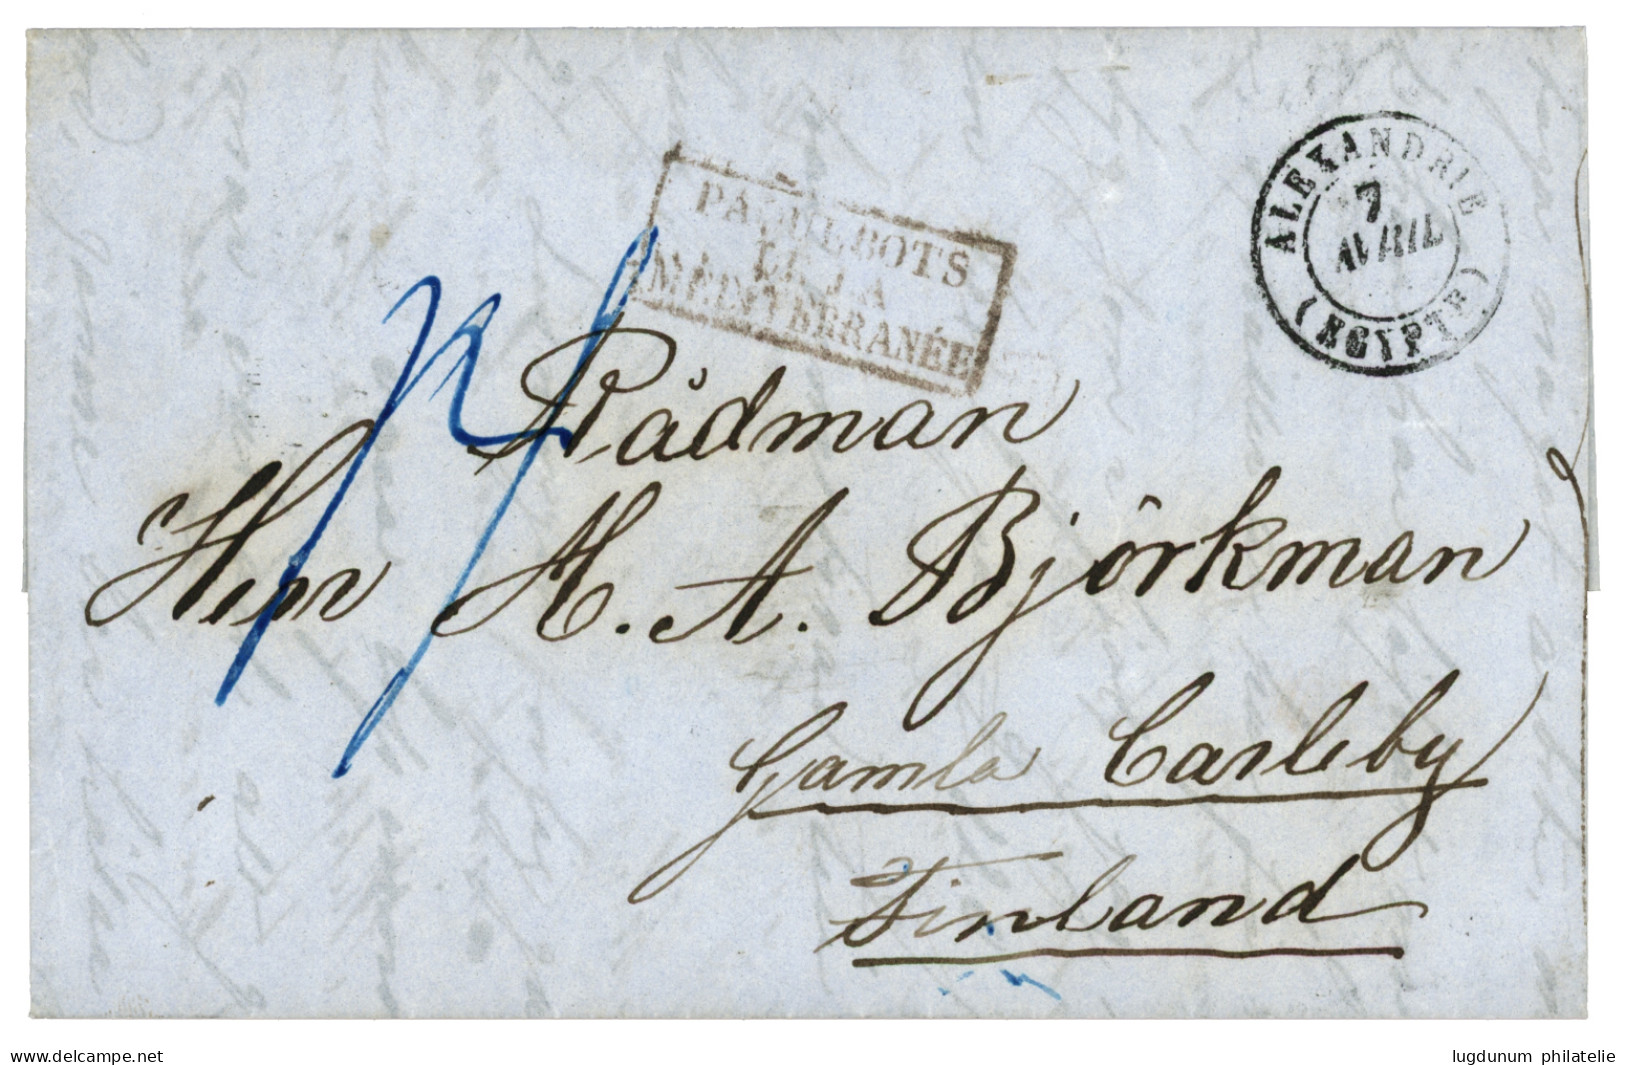 ALEXANDRIE
7
AVRIL
(EGYPTE)
PAQUEBOTS
DE LA
MÉDITERRANÉE
Rådman
Herr H. A. Björkman
Gamla Carleby
Finland
delcampe.net
lugdunum philatelie